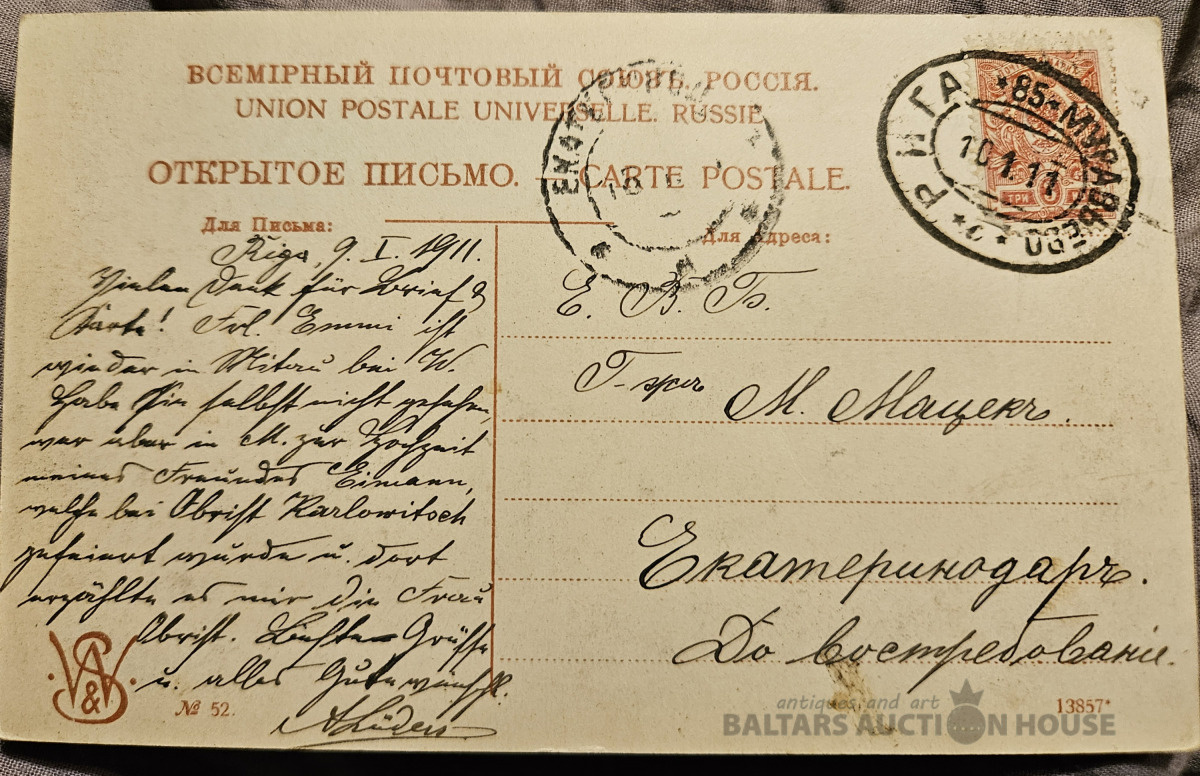 ВСЕМІРНЫЙ ПОЧТОВЫЙ СОЮЗЪ. РОССІЯ.
UNION POSTALE UNIVERSELLE. RUSSIE
ОТКРЫТОЕ ПИСЬМО. — CARTE POSTALE.
РИГА *85-МУРАВЬЕВО* с*
10.1.11
ТРИ
ЕКАТЕРИНО
Для Письма:
Riga, 9. I. 1911.
Vielen Dank für Brief &
Karte! Frl. Emmi ist
wieder in Mitau bei W.
Habe Sie selbst nicht gesehen,
war aber in M. zur Hochzeit
meines Freundes Eimann,
welche bei Obrist Karlowitsch
gefeiert wurde u. dort
erzählte es mir die Frau
Obrist. Beste Grüsse
u. alles Gute wünscht.
ALüders
Для Адреса:
Е. В. Б.
Г-жа М. Мацекъ.
Екатеринодаръ.
До востребованія.
W&
№ 52.
13857*
antiques and art
BALTARS AUCTION HOUSE